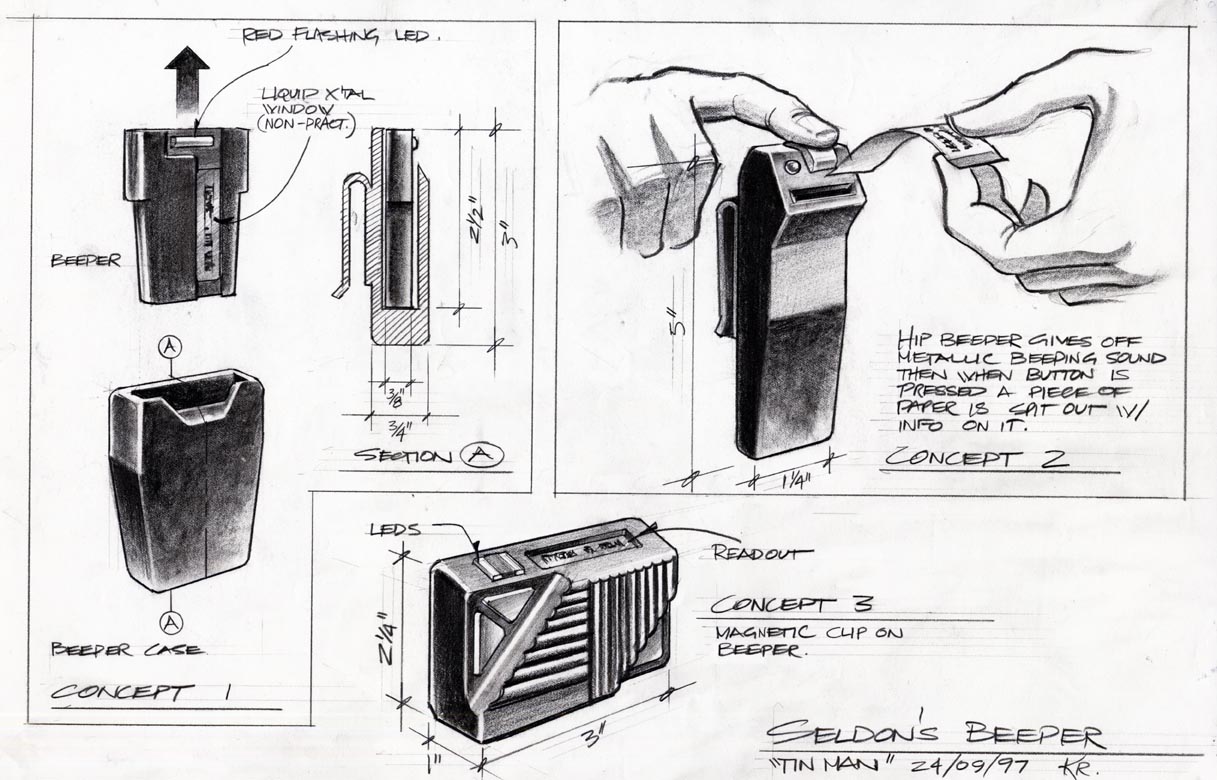 RED FLASHING LED.
LIQUID X'TAL
WINDOW
(NON-PRACT.)
BEEPER
2½"
3"
⅜"
¾"
SECTION A
A
A
BEEPER CASE
CONCEPT 1
5"
1¼"
HIP BEEPER GIVES OFF
METALLIC BEEPING SOUND
THEN WHEN BUTTON IS
PRESSED A PIECE OF
PAPER IS SPAT OUT W/
INFO ON IT.
CONCEPT 2
LEDS
READOUT
2¼"
1"
3"
CONCEPT 3
MAGNETIC CLIP ON
BEEPER.
SELDON'S BEEPER
"TIN MAN" 24/09/97 KR.